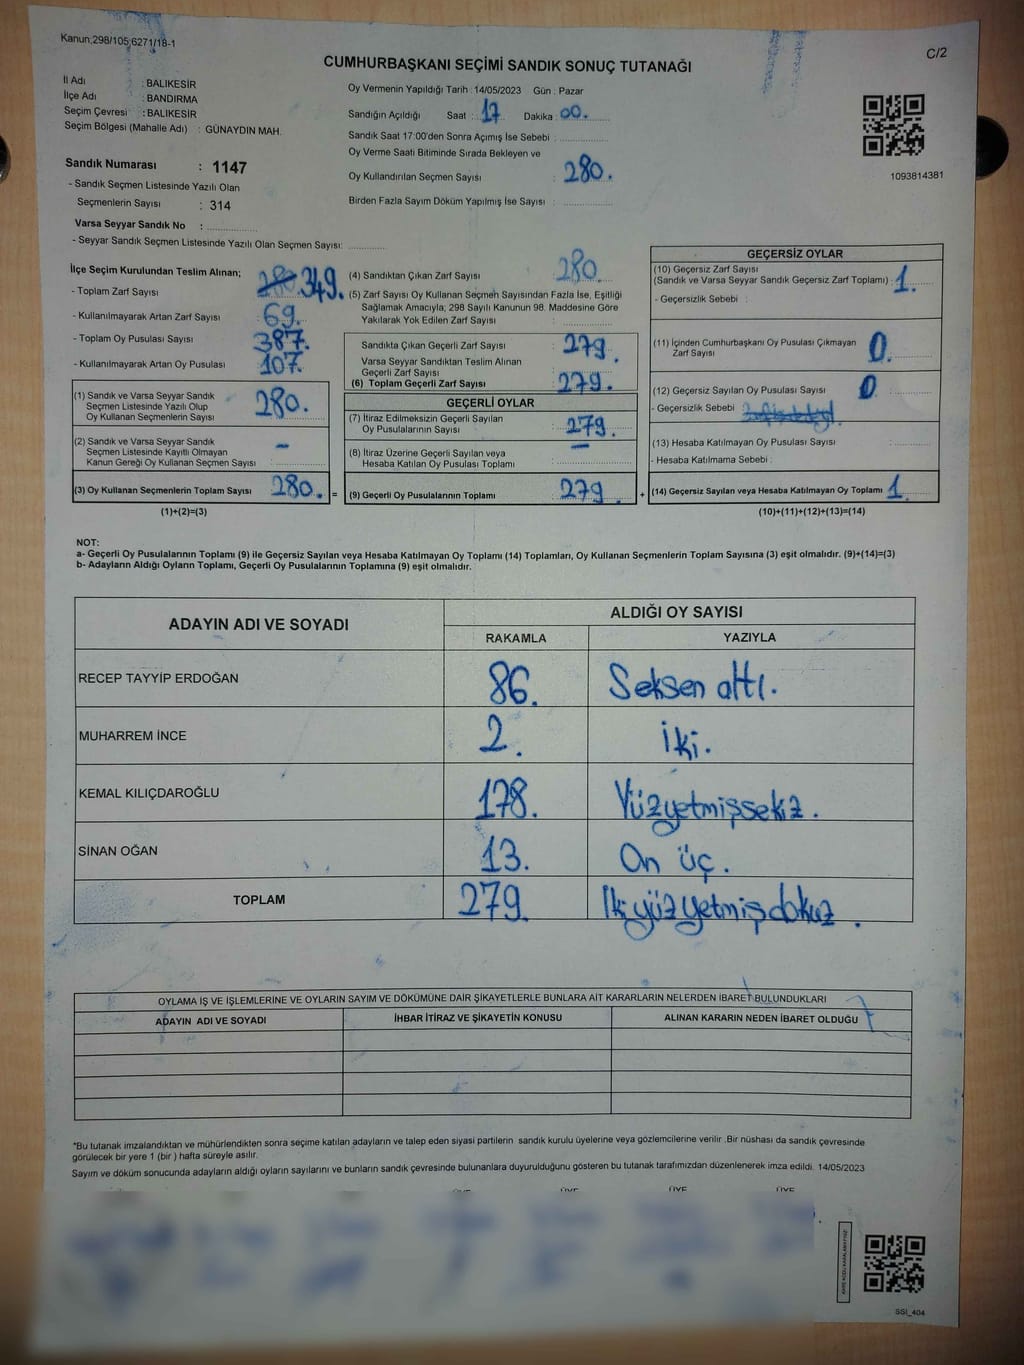 Kanun;298/105;6271/18-1
C/2
CUMHURBAŞKANI SEÇİMİ SANDIK SONUÇ TUTANAĞI
İl Adı : BALIKESİR
İlçe Adı : BANDIRMA
Seçim Çevresi : BALIKESİR
Seçim Bölgesi (Mahalle Adı) : GÜNAYDIN MAH.
Oy Vermenin Yapıldığı Tarih : 14/05/2023 Gün : Pazar
Sandığın Açıldığı Saat : 17 Dakika : 00.
Sandık Saat 17:00'den Sonra Açımış İse Sebebi :
Oy Verme Saati Bitiminde Sırada Bekleyen ve
Oy Kullandırılan Seçmen Sayısı : 280.
Birden Fazla Sayım Döküm Yapılmış İse Sayısı :
1093814381
Sandık Numarası : 1147
- Sandık Seçmen Listesinde Yazılı Olan
Seçmenlerin Sayısı : 314
Varsa Seyyar Sandık No :
- Seyyar Sandık Seçmen Listesinde Yazılı Olan Seçmen Sayısı:
İlçe Seçim Kurulundan Teslim Alınan;
- Toplam Zarf Sayısı : 280 349.
- Kullanılmayarak Artan Zarf Sayısı : 69.
- Toplam Oy Pusulası Sayısı : 387.
- Kullanılmayarak Artan Oy Pusulası : 107.
(1) Sandık ve Varsa Seyyar Sandık
Seçmen Listesinde Yazılı Olup
Oy Kullanan Seçmenlerin Sayısı : 280.
(2) Sandık ve Varsa Seyyar Sandık
Seçmen Listesinde Kayıtlı Olmayan
Kanun Gereği Oy Kullanan Seçmen Sayısı : -
(3) Oy Kullanan Seçmenlerin Toplam Sayısı 280. =
(1)+(2)=(3)
(4) Sandıktan Çıkan Zarf Sayısı : 280.
(5) Zarf Sayısı Oy Kullanan Seçmen Sayısından Fazla İse, Eşitliği
Sağlamak Amacıyla; 298 Sayılı Kanunun 98. Maddesine Göre
Yakılarak Yok Edilen Zarf Sayısı :
Sandıkta Çıkan Geçerli Zarf Sayısı : 279.
Varsa Seyyar Sandıktan Teslim Alınan
Geçerli Zarf Sayısı :
(6) Toplam Geçerli Zarf Sayısı : 279.
GEÇERLİ OYLAR
(7) İtiraz Edilmeksizin Geçerli Sayılan
Oy Pusulalarının Sayısı : 279.
(8) İtiraz Üzerine Geçerli Sayılan veya
Hesaba Katılan Oy Pusulası Toplamı : -
(9) Geçerli Oy Pusulalarının Toplamı : 279 +
GEÇERSİZ OYLAR
(10) Geçersiz Zarf Sayısı
(Sandık ve Varsa Seyyar Sandık Geçersiz Zarf Toplamı) : 1.
- Geçersizlik Sebebi :
(11) İçinden Cumhurbaşkanı Oy Pusulası Çıkmayan
Zarf Sayısı : 0.
(12) Geçersiz Sayılan Oy Pusulası Sayısı : 0
- Geçersizlik Sebebi
(13) Hesaba Katılmayan Oy Pusulası Sayısı :
- Hesaba Katılmama Sebebi :
(14) Geçersiz Sayılan veya Hesaba Katılmayan Oy Toplamı : 1.
(10)+(11)+(12)+(13)=(14)
NOT:
a- Geçerli Oy Pusulalarının Toplamı (9) ile Geçersiz Sayılan veya Hesaba Katılmayan Oy Toplamı (14) Toplamları, Oy Kullanan Seçmenlerin Toplam Sayısına (3) eşit olmalıdır. (9)+(14)=(3)
b- Adayların Aldığı Oyların Toplamı, Geçerli Oy Pusulalarının Toplamına (9) eşit olmalıdır.
ADAYIN ADI VE SOYADI
ALDIĞI OY SAYISI
RAKAMLA YAZIYLA
RECEP TAYYİP ERDOĞAN 86. Seksen altı.
MUHARREM İNCE 2. İki.
KEMAL KILIÇDAROĞLU 178. Yüzyetmişsekiz.
SİNAN OĞAN 13. On üç.
TOPLAM 279. İkiyüzyetmişdokuz.
OYLAMA İŞ VE İŞLEMLERİNE VE OYLARIN SAYIM VE DÖKÜMÜNE DAİR ŞİKAYETLERLE BUNLARA AİT KARARLARIN NELERDEN İBARET BULUNDUKLARI
ADAYIN ADI VE SOYADI
İHBAR İTİRAZ VE ŞİKAYETİN KONUSU
ALINAN KARARIN NEDEN İBARET OLDUĞU
*Bu tutanak imzalandıktan ve mühürlendikten sonra seçime katılan adayların ve talep eden siyasi partilerin sandık kurulu üyelerine veya gözlemcilerine verilir .Bir nüshası da sandık çevresinde
görülecek bir yere 1 (bir ) hafta süreyle asılır.
Sayım ve döküm sonucunda adayların aldığı oyların sayılarını ve bunların sandık çevresinde bulunanlara duyurulduğunu gösteren bu tutanak tarafımızdan düzenlenerek imza edildi. 14/05/2023
ÜYE ÜYE ÜYE
SSI_404